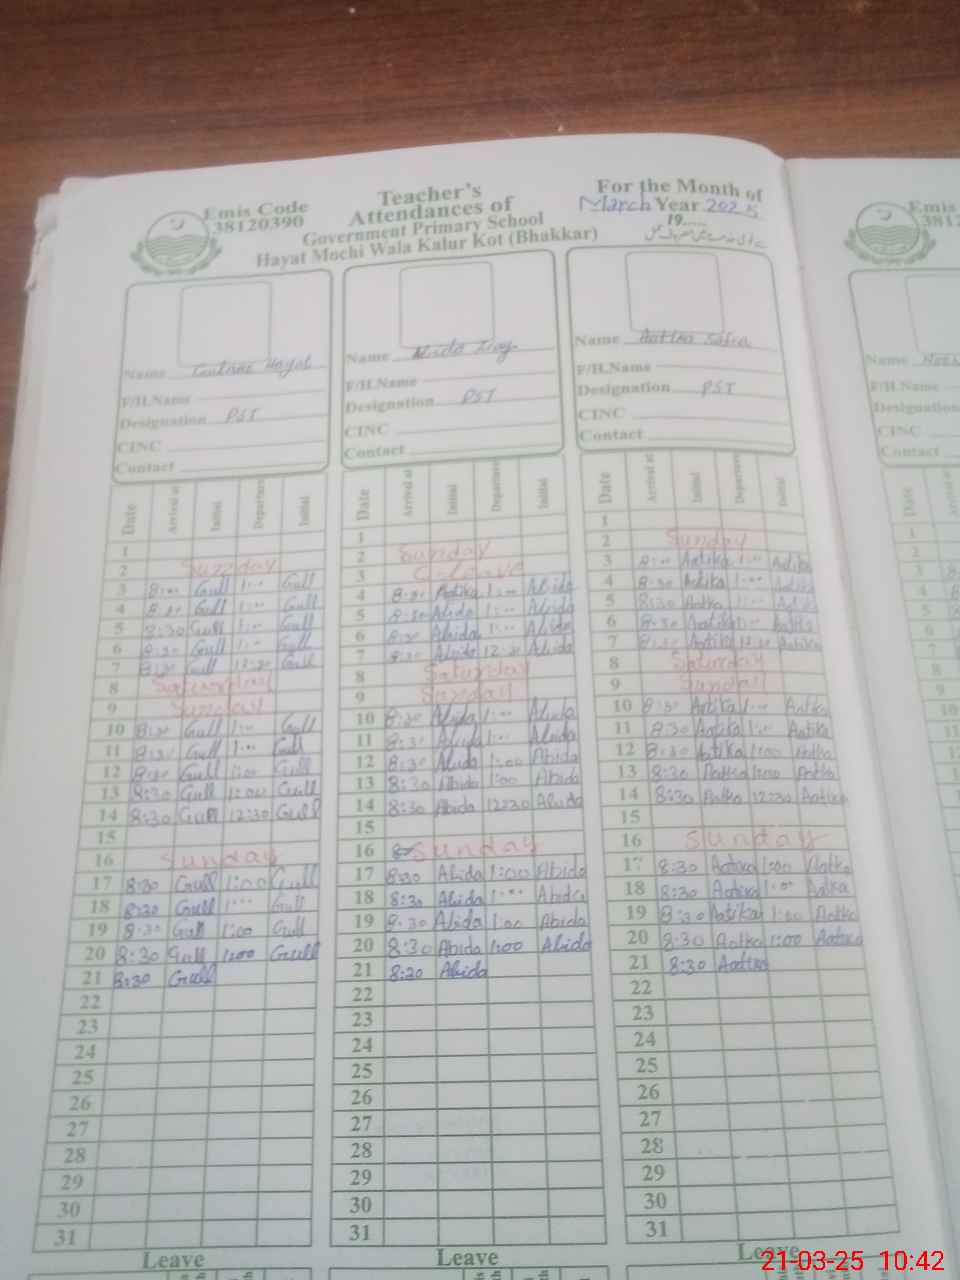 Emis Code
38120390
Teacher's
Attendances of
Government Primary School
Hayat Mochi Wala Kalur Kot (Bhakkar)
For the Month of
March Year 2025
19......
Name Hayat
F/H.Name
Designation PST
CINC
Contact
Name Abida
F/H.Name
Designation PST
CINC
Contact
Name
F/H.Name
Designation PST
CINC
Contact
Date Arrival at Initial Departure Initial
1
2 Sunday
3 8:00 Gull 1:00 Gull
4 8:30 Gull 1:00 Gull
5 8:30 Gull 1:00 Gull
6 8:30 Gull 1:00 Gull
7 8:30 Gull 12:30 Gull
8 Saturday
9 Sunday
10 8:30 Gull 1:00 Gull
11 8:30 Gull 1:00 Gull
12 8:30 Gull 1:00 Gull
13 8:30 Gull 1:00 Gull
14 8:30 Gull 12:30 Gull
15
16 Sunday
17 8:30 Gull 1:00 Gull
18 8:30 Gull 1:00 Gull
19 8:30 Gull 1:00 Gull
20 8:30 Gull 1:00 Gull
21 8:30 Gull
22
23
24
25
26
27
28
29
30
31
Leave
Date Arrival at Initial Departure Initial
1
2 Sunday
3 C-leave
4 8:30 1:00 Abida
5 8:30 Abida 1:00 Abida
6 8:30 Abida 1:00 Abida
7 8:30 Abida 12:30 Abida
8 Saturday
9 Sunday
10 8:30 Abida 1:00 Abida
11 8:30 Abida 1:00 Abida
12 8:30 Abida 1:00 Abida
13 8:30 Abida 1:00 Abida
14 8:30 Abida 12:30 Abida
15
16 Sunday
17 8:30 Abida 1:00 Abida
18 8:30 Abida 1:00 Abida
19 8:30 Abida 1:00 Abida
20 8:30 Abida 1:00 Abida
21 8:30 Abida
22
23
24
25
26
27
28
29
30
31
Leave
Date Arrival at Initial Departure Initial
1
2 Sunday
3 8:00 Aatika 1:00 Aatika
4 8:30 Aatika 1:00 Aatika
5 8:30 Aatka 1:00
6 8:30 Aatika 1:00 Aatka
7 8:30 Aatika 12:30 Aatika
8 Saturday
9 Sunday
10 8:30 Aatika 1:00 Aatka
11 8:30 Aatika 1:00 Aatka
12 8:30 Aatika 1:00 Aatka
13 8:30 Aatka 1:00 Aatka
14 8:30 Aatka 12:30 Aatika
15
16 Sunday
17 8:30 Aatika 1:00 Aatka
18 8:30 Aatika 1:00 Aatka
19 8:30 Aatika 1:00 Aatka
20 8:30 Aatka 1:00 Aatika
21 8:30 Aatika
22
23
24
25
26
27
28
29
30
31
Leave
Emis
3812
Name
F/H.Name
Designation
CINC
Contact
Date
1
2
21-03-25 10:42